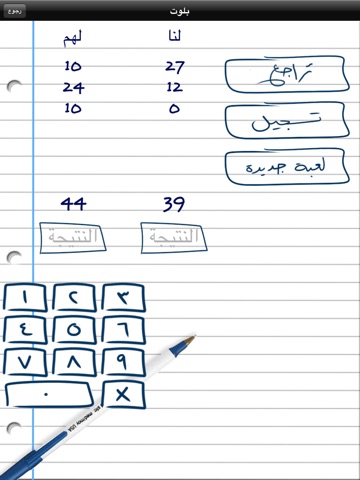 بلوت رجوع
لنا لهم
27 10
12 24
0 10
39 44
النتيجة النتيجة
تراجع
تسجيل
لعبة جديدة
١ ٢ ٣
٤ ٥ ٦
٧ ٨ ٩
٠ X